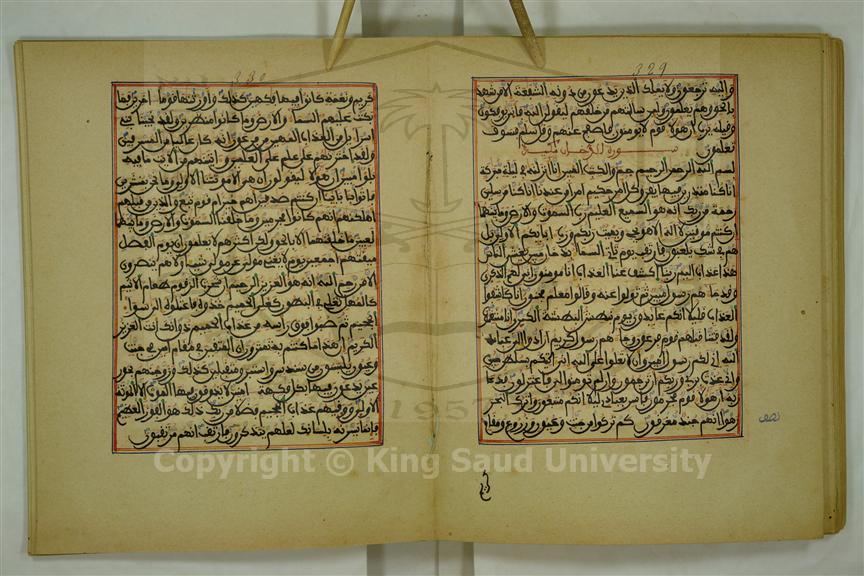 329
واليه ترجعون ولا يملك الذين يدعون من دونه الشفعة الا من شهد
بالحق وهم يعلمون ولين سالتهم من خلقهم ليقولن الله فانى يوفكون
وقيله يرب ان هولا قوم لا يومنون فاصفح عنهم وقل سلم فسوف
تعلمون سورة الدخان مكية
بسم الله الرحمن الرحيم حم والكتب المبين انا انزلنه في ليلة مبركة
انا كنا منذرين فيها يفرق كل امر حكيم امرا من عندنا انا كنا مرسلين
رحمة من ربك انه هو السميع العليم رب السموت والارض وما بينهما
ان كنتم موقنين لا اله الا هو يحي ويميت ربكم ورب ابايكم الاولين بل
هم في شك يلعبون فارتقب يوم تاتي السما بدخان مبين يغشى الناس
هذا عذاب اليم ربنا اكشف عنا العذاب انا مومنون انى لهم الذكرى
وقد جاهم رسول مبين ثم تولوا عنه وقالوا معلم مجنون انا كاشفوا
العذاب قليلا انكم عايدون يوم نبطش البطشة الكبرى انا منتقمون
ولقد فتنا قبلهم قوم فرعون وجاهم رسول كريم ان ادوا الي عباد
الله اني لكم رسول امين وان لا تعلوا على الله اني اتيكم بسلطن مبين
واني عذت بربي وربكم ان ترجمون وان لم تومنوا لي فاعتزلون فدعا
ربه ان هولا قوم مجرمون فاسر بعبادي ليلا انكم متبعون واترك البحر
رهوا انهم جند مغرقون كم تركوا من جنت وعيون وزروع ومقام
كريم
330
كريم ونعمة كانوا فيها فكهين كذلك واورثنها قوما اخرين فما
بكت عليهم السما والارض وما كانوا منظرين ولقد نجينا بني
اسرايل من العذاب المهين من فرعون انه كان عاليا من المسرفين
ولقد اخترنهم على علم على العلمين واتينهم من الايت ما فيه
بلوا مبين ان هولا ليقولون ان هي الا موتتنا الاولى وما نحن بمنشرين
فاتوا باباينا ان كنتم صدقين اهم خير ام قوم تبع والذين من قبلهم
اهلكنهم انهم كانوا مجرمين وما خلقنا السموت والارض وما بينهما
لعبين ما خلقنهما الا بالحق ولكن اكثرهم لا يعلمون ان يوم الفصل
ميقتهم اجمعين يوم لا يغني مولى عن مولى شيا ولا هم ينصرون
الا من رحم الله انه هو العزيز الرحيم ان شجرت الزقوم طعام الاثيم
كالمهل تغلي في البطون كغلي الحميم خذوه فاعتلوه الى سوا
الجحيم ثم صبوا فوق راسه من عذاب الحميم ذق انك انت العزيز
الكريم ان هذا ما كنتم به تمترون ان المتقين في مقام امين في جنت
وعيون يلبسون من سندس واستبرق متقبلين كذلك وزوجنهم بحور
عين يدعون فيها بكل فكهة امنين لا يذوقون فيها الموت الا الموتة
الاولى ووقيهم عذاب الجحيم فضلا من ربك ذلك هو الفوز العظيم
فانما يسرنه بلسانك لعلهم يتذكرون فارتقب انهم مرتقبون
1957
Copyright © King Saud University